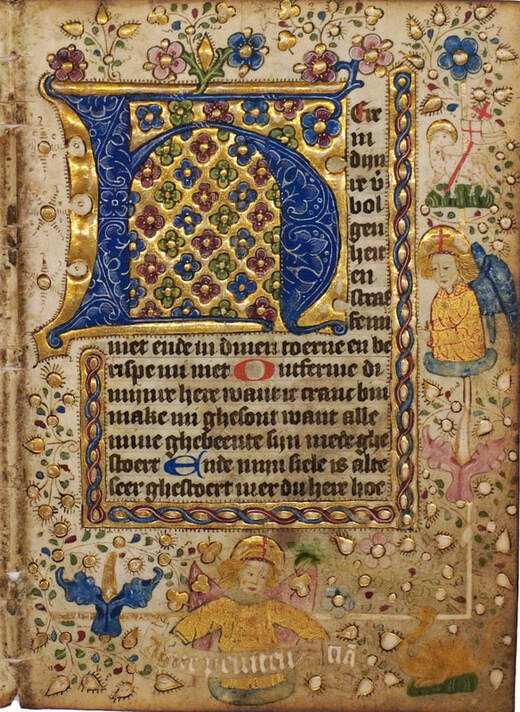 HEre
in
dijn
re v̄
bol
gen
heit
en
straf
fe mi
niet ende in dinen toerne en be
rispe mi niet Ontferme di
mijnre here want ic cranc bin
make mi ghesont want alle
mine ghebeente sijn mede ghe
stoert Ende mijn siele is alte
seer ghestoert mer du here hoe
peniten ciā